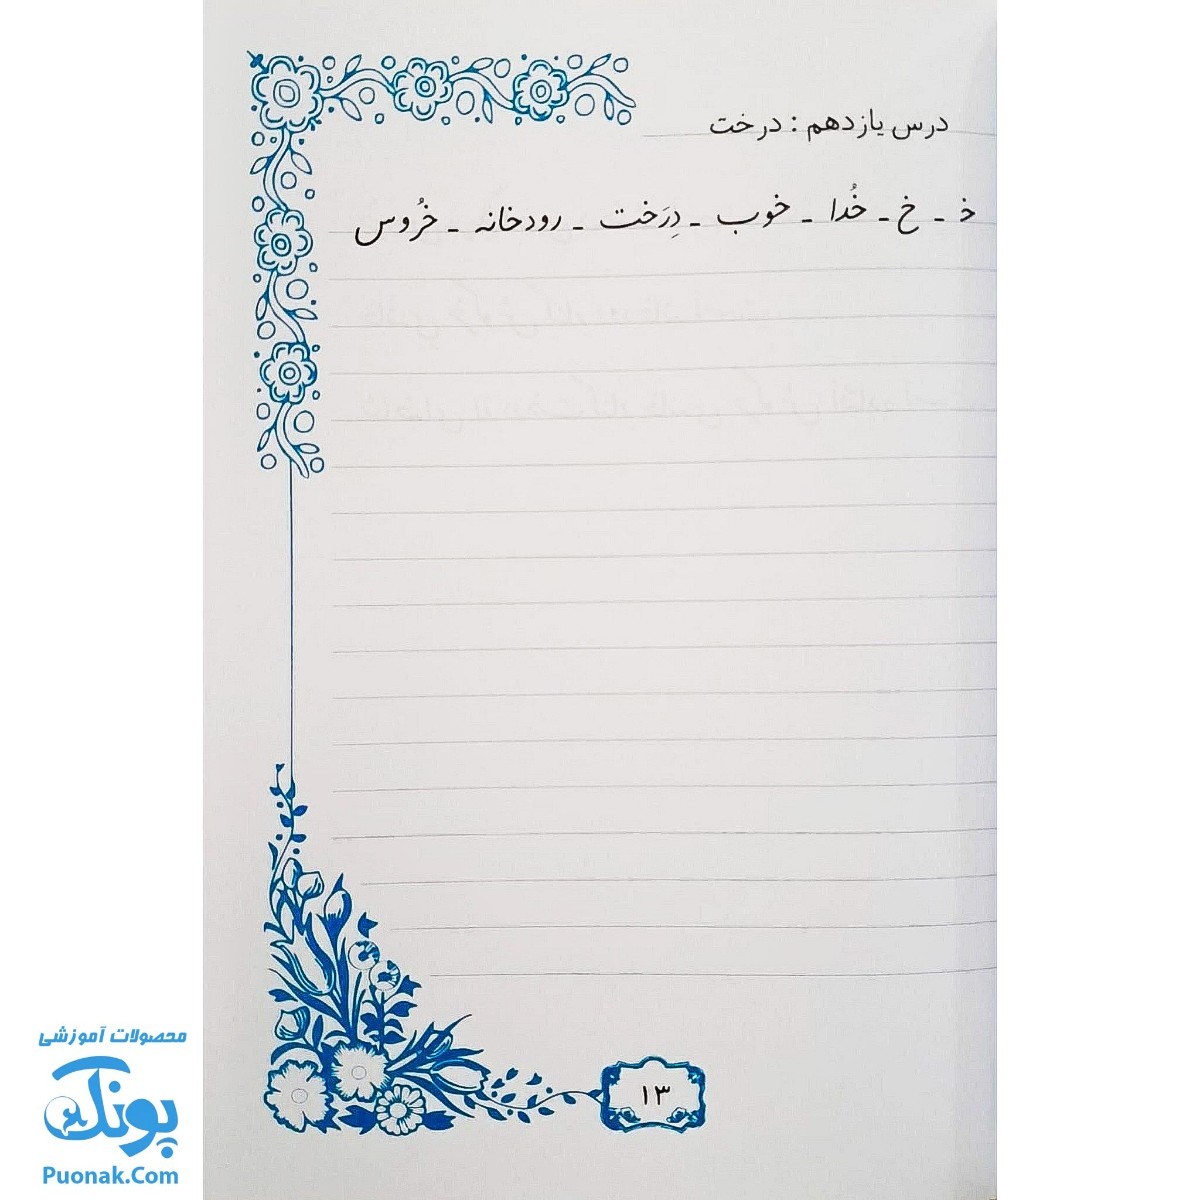 درس یازدهم : درخت
خـ ـ خ ـ خُدا ـ خوب ـ دِرَخت ـ رودخانه ـ خُروس
۱۳
محصولات آموزشی
پونک
Puonak.Com